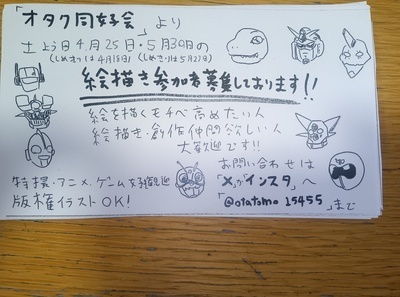 「オタク同好会」より
土よう日4月25日・5月30日の
(しめきりは4月18日)(しめきりは5月23日)
絵描き参加者募集しております!!
絵を描くモチベ高めたい人
絵描き・創作仲間欲しい人
大歓迎です!!
お問い合わせは
特撮・アニメ、ゲーム好き歓迎
「X」か「インスタ」へ
版権イラストOK!
「@otatomo 15455」まで